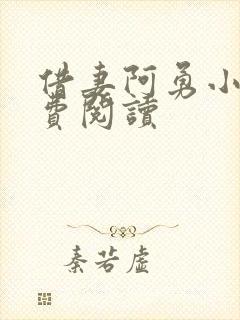 借妻阿勇小
費閱讀
秦若虛